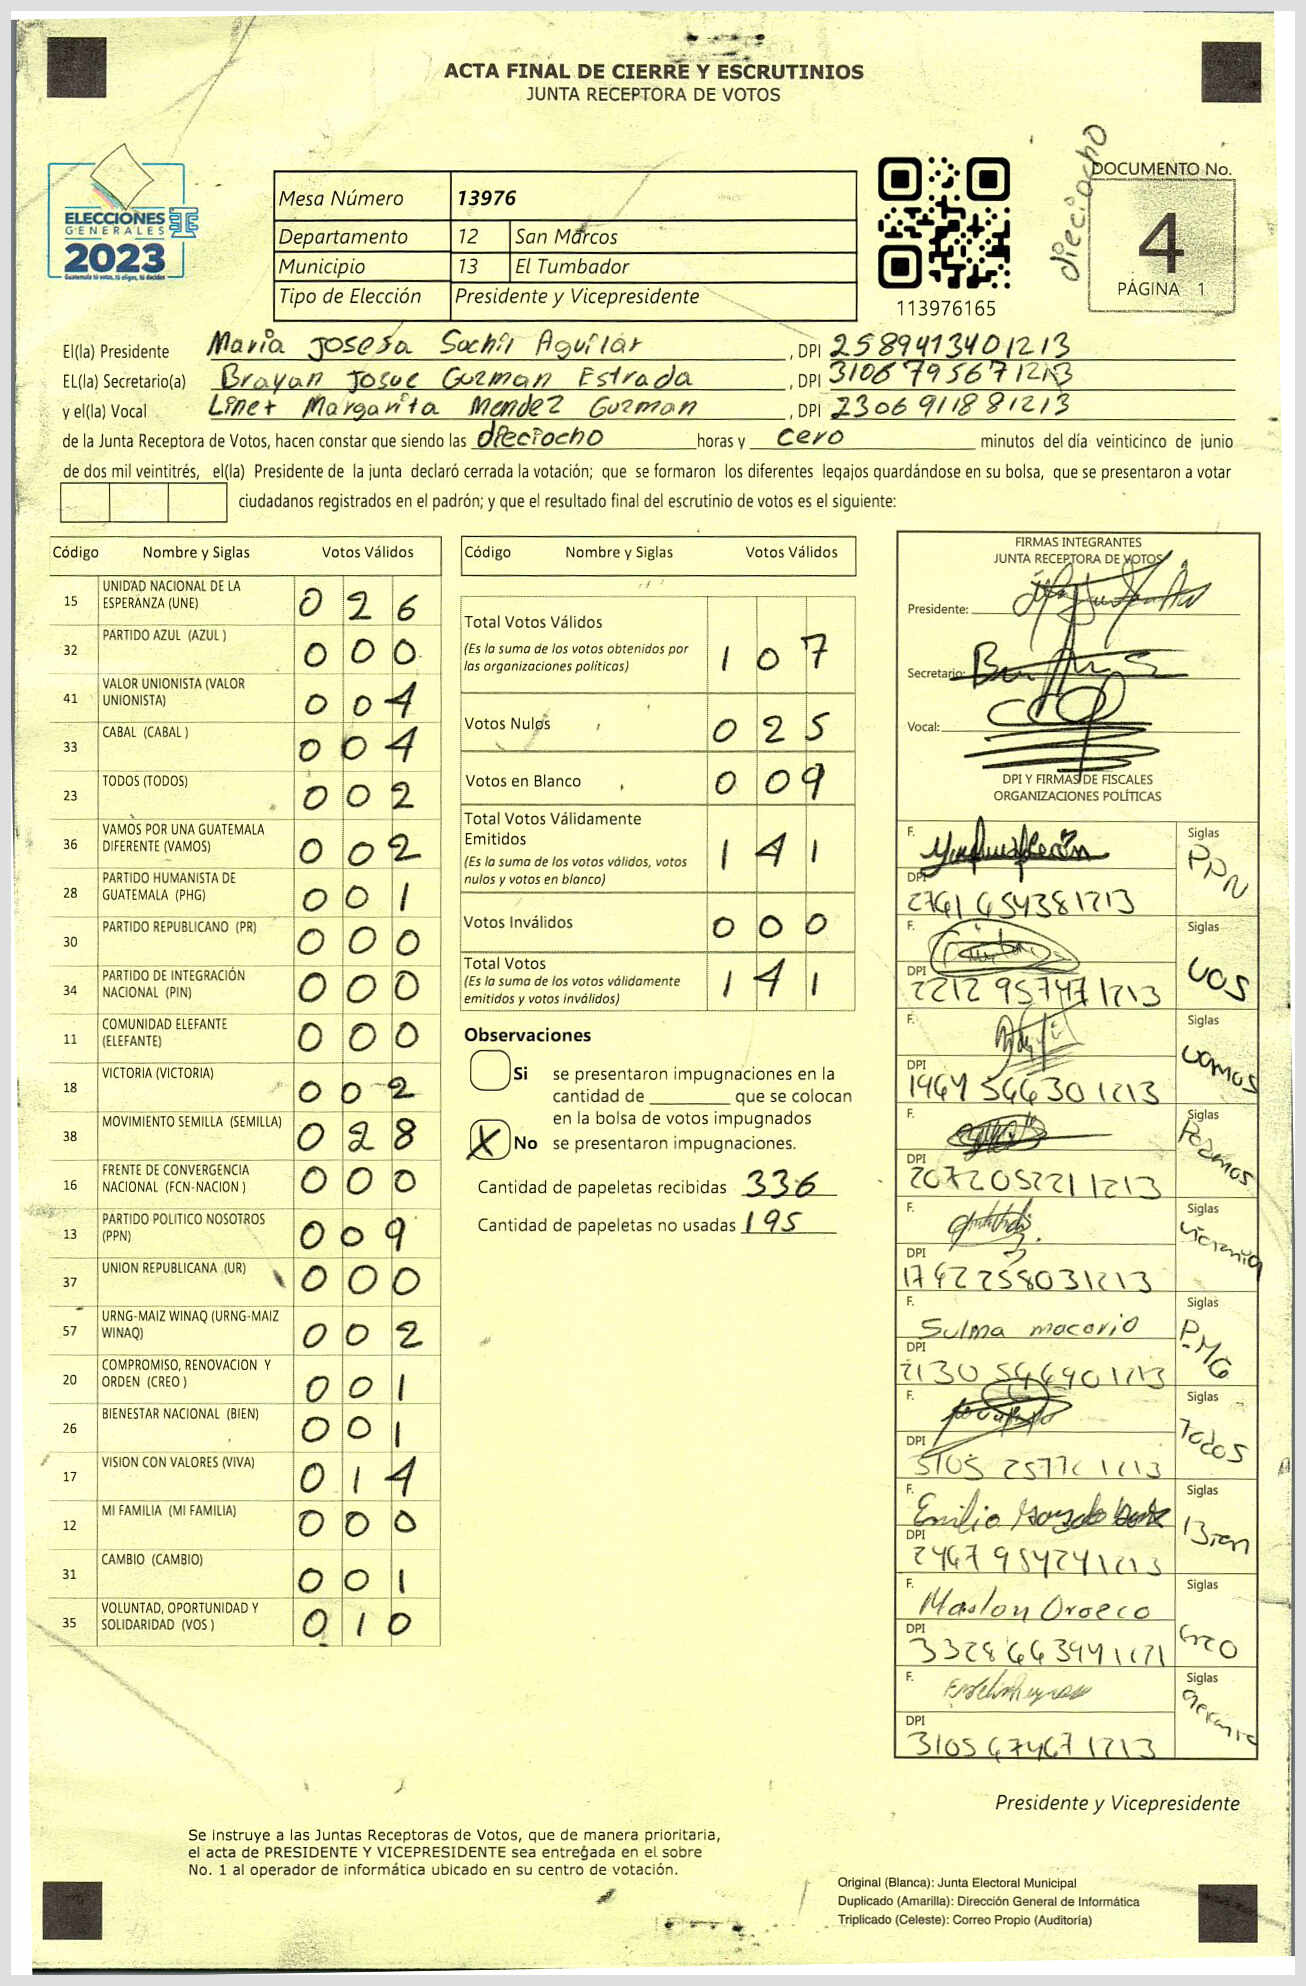 ACTA FINAL DE CIERRE Y ESCRUTINIOS
JUNTA RECEPTORA DE VOTOS
ELECCIONES
GENERALES
2023
Guatemala tú votas, tú eliges, tú decides
Mesa Número 13976
Departamento 12 San Marcos
Municipio 13 El Tumbador
Tipo de Elección Presidente y Vicepresidente
113976165
dieciocho
DOCUMENTO No.
4
PÁGINA 1
El(la) Presidente Maria Josefa Sochil Aguilar , DPI 2589413401213
EL(la) Secretario(a) Brayan Josue Guzman Estrada , DPI 3106795671213
y el(la) Vocal Linet Margarita Mendez Guzman , DPI 2306911881213
de la Junta Receptora de Votos, hacen constar que siendo las dieciocho horas y cero minutos del día veinticinco de junio
de dos mil veintitrés, el(la) Presidente de la junta declaró cerrada la votación; que se formaron los diferentes legajos guardándose en su bolsa, que se presentaron a votar
ciudadanos registrados en el padrón; y que el resultado final del escrutinio de votos es el siguiente:
Código Nombre y Siglas Votos Válidos
15 UNIDAD NACIONAL DE LA ESPERANZA (UNE) 0 2 6
32 PARTIDO AZUL (AZUL ) 0 0 0
41 VALOR UNIONISTA (VALOR UNIONISTA) 0 0 4
33 CABAL (CABAL ) 0 0 4
23 TODOS (TODOS) 0 0 2
36 VAMOS POR UNA GUATEMALA DIFERENTE (VAMOS) 0 0 2
28 PARTIDO HUMANISTA DE GUATEMALA (PHG) 0 0 1
30 PARTIDO REPUBLICANO (PR) 0 0 0
34 PARTIDO DE INTEGRACIÓN NACIONAL (PIN) 0 0 0
11 COMUNIDAD ELEFANTE (ELEFANTE) 0 0 0
18 VICTORIA (VICTORIA) 0 0 2
38 MOVIMIENTO SEMILLA (SEMILLA) 0 2 8
16 FRENTE DE CONVERGENCIA NACIONAL (FCN-NACION ) 0 0 0
13 PARTIDO POLITICO NOSOTROS (PPN) 0 0 9
37 UNION REPUBLICANA (UR) 0 0 0
57 URNG-MAIZ WINAQ (URNG-MAIZ WINAQ) 0 0 2
20 COMPROMISO, RENOVACION Y ORDEN (CREO ) 0 0 1
26 BIENESTAR NACIONAL (BIEN) 0 0 1
17 VISION CON VALORES (VIVA) 0 1 4
12 MI FAMILIA (MI FAMILIA) 0 0 0
31 CAMBIO (CAMBIO) 0 0 1
35 VOLUNTAD, OPORTUNIDAD Y SOLIDARIDAD (VOS ) 0 1 0
Código Nombre y Siglas Votos Válidos
Total Votos Válidos
(Es la suma de los votos obtenidos por
las organizaciones políticas) 1 0 7
Votos Nulos 0 2 5
Votos en Blanco 0 0 9
Total Votos Válidamente
Emitidos
(Es la suma de los votos válidos, votos
nulos y votos en blanco) 1 4 1
Votos Inválidos 0 0 0
Total Votos
(Es la suma de los votos válidamente
emitidos y votos inválidos) 1 4 1
Observaciones
Si se presentaron impugnaciones en la
cantidad de que se colocan
en la bolsa de votos impugnados
X No se presentaron impugnaciones.
Cantidad de papeletas recibidas 336
Cantidad de papeletas no usadas 195
FIRMAS INTEGRANTES
JUNTA RECEPTORA DE VOTOS
Presidente:
Secretario:
Vocal:
DPI Y FIRMAS DE FISCALES
ORGANIZACIONES POLÍTICAS
F. Siglas PPN
DPI
F. Siglas VOS
DPI 2212957471213
F. Siglas vamos
DPI
F. Siglas Podemos
DPI 2072052211213
F. Siglas
DPI
F. Sulma macario Siglas
DPI
F. Siglas Todos
DPI
F. Emilio Siglas Bien
DPI
F. Marlon Orozco Siglas creo
DPI
F. Siglas
DPI
Presidente y Vicepresidente
Se instruye a las Juntas Receptoras de Votos, que de manera prioritaria,
el acta de PRESIDENTE Y VICEPRESIDENTE sea entregada en el sobre
No. 1 al operador de informática ubicado en su centro de votación.
Original (Blanca): Junta Electoral Municipal
Duplicado (Amarilla): Dirección General de Informática
Triplicado (Celeste): Correo Propio (Auditoría)